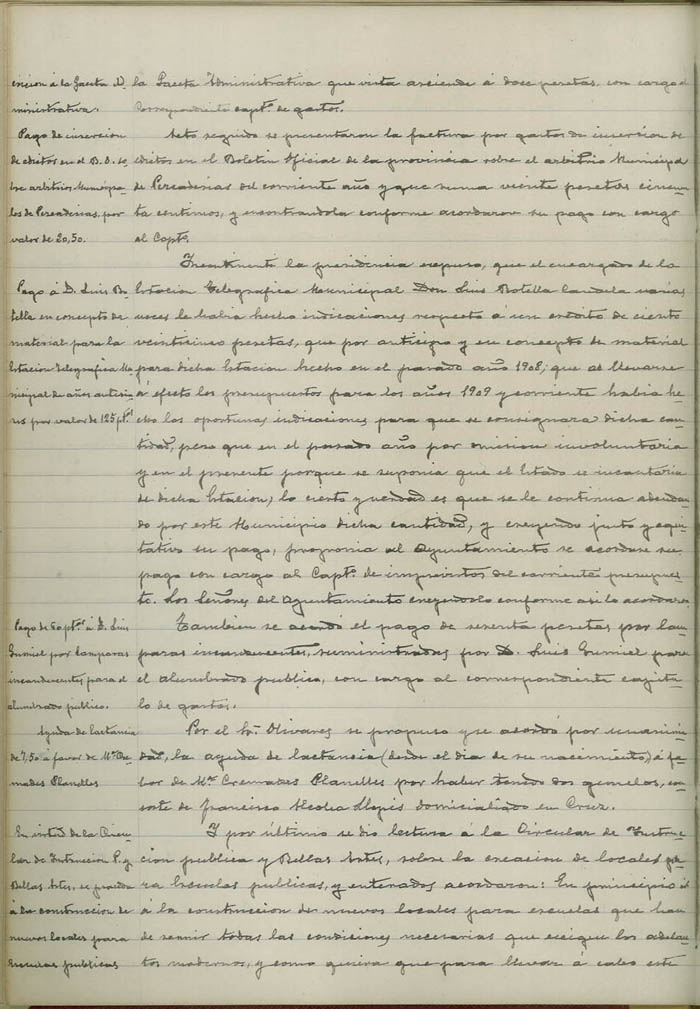 la Gaceta Administrativa que vista asciende á doce pesetas, con cargo al
correspondiente captº. de gastos.
Pago de insercion
de edictos en el B. O. so-
bre arbitrios Municipa-
les de Pescaderias, por
valor de 20,50.
Acto seguido se presentaron la factura por gastos de insercion de
edictos en el Boletin Oficial de la provincia sobre el arbitrio Municipal
de Pescaderias del corriente año y que suma veinte pesetas cincuen-
ta centimos, y encontrandola conforme acordaron su pago con cargo
al Captº.
Pago á D. Luis Bo-
tella en concepto de
material para la
Estacion Telegrafica Mu-
nicipal de años anterio-
res por valor de 125 ptˢ.
Incontinente la presidencia expuso, que el encargado de la
Estacion Telegrafica Municipal Don Luis Botella Candela varias
veces le habia hecho indicaciones respecto á un credito de ciento
veinticinco pesetas, que por anticipo y en concepto de material
para dicha Estacion hecho en el pasado año 1908; que al llevarse
á efecto los presupuestos para los años 1909 y corriente habia he-
cho las oportunas indicaciones para que se consignara dicha can-
tidad, pero que en el pasado año por omision involuntaria
y en el presente porque se suponia que el Estado se incautaria
de dicha Estacion, lo cierto y verdad es que se le continua adeudan-
do por este Municipio dicha cantidad, y creyendo justo y equi-
tativo su pago, proponia al Ayuntamiento se acordase su
pago con cargo al Captº. de imprevistos del corriente presupues-
to. Los Señores del Ayuntamiento creyendolo conforme asi lo acordaron
Pago de 60 ptˢ. á D. Luis
Gumiel por lamparas
incandescentes para el
alumbrado publico.
Tambien se acordó el pago de sesenta pesetas por lam-
paras incandescentes, suministradas por D. Luis Gumiel para
el alumbrado publico, con cargo al correspondiente capitu-
lo de gastos.
Ayuda de lactancia
de 7,50 á favor de Mª. Cre-
mades Planelles
Por el Sr. Olivares se propuso y se acordó por unanimi-
dad, la ayuda de lactancia (desde el dia de su nacimiento) á fa-
bor de Mª. Cremades Planelles por haber tenido dos gemelos, con-
sorte de Francisco Alcolea Llopis domicialiado en Cruz.
En virtud de la Circu-
lar de Instruccion P. y
Bellas Artes, se proceda
á la construccion de
nuevos locales para
Escuelas publicas
Y por último se dio lectura a la Circular de Instruc-
cion publica y Bellas Artes, sobre la creacion de locales pa-
ra Escuelas publicas, y enterados acordaron: En principio
á la construccion de nuevos locales para escuelas que han
de reunir todas las condiciones necesarias que exigen los adelan-
tos modernos, y como quiera que para llevar á cabo este